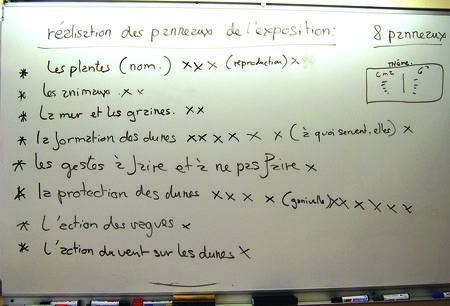 réalisation des panneaux de l'exposition:
8 panneaux
thème.
cm2
* les plantes (nom.) x x x (reproduction) x
* les animaux. x x
* la mer et les graines. x x
* la formation des dunes x x x x x x (à quoi servent-elles) x
* les gestes à faire et à ne pas faire x
* la protection des dunes x x x x (ganivelle) x x x x x x
* L'action des vagues x
* L'action du vent sur les dunes x